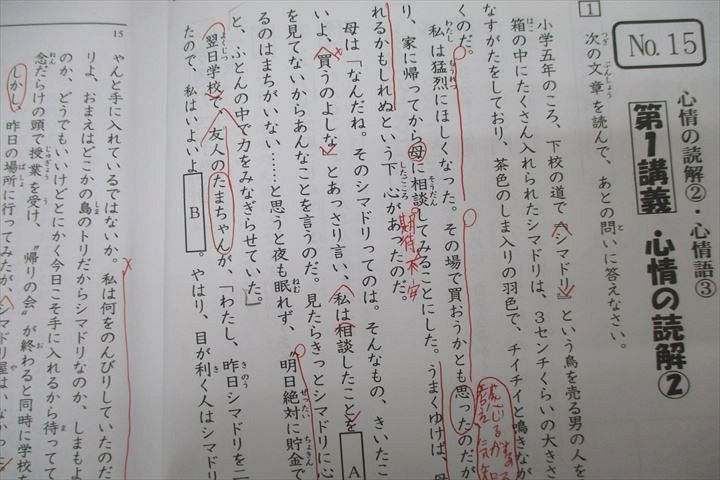 No.15
心情の読解②・心情語③
第1講義 心情の読解②
1
次の文章を読んで、あとの問いに答えなさい。
小学五年のころ、下校の道で『シマドリ』という鳥を売る男の人を
箱の中にたくさん入れられたシマドリは、3センチくらいの大きさ
なすがたをしており、茶色のしま入りの羽色で、チイチイと鳴きなが
くのだ。
私は猛烈にほしくなった。その場で買おうかとも思ったのだが
り、家に帰ってから母に相談してみることにした。うまくゆけば、母
れるかもしれぬという下心があったのだ。
期待 不安
母は「なんだね。そのシマドリってのは。そんなもの、きいたこ
いよ、買うのよしな」とあっさり言い、私は相談したことを A
を見てないからあんなことを言うのだ。見たらきっとシマドリに心
るのはまちがいない……と思うと夜も眠れず、〝明日絶対に貯金で
と、ふとんの中で力をみなぎらせていた。
翌日学校で、友人のたまちゃんが、「わたし、昨日シマドリを二
たので、私はいよいよ B 。やはり、目が利く人はシマドリ
15
ゃんと手に入れているではないか。私は何をのんびりしていたのだ
りよ、おまえはどこかの島のトリだからシマドリなのか、しまもよ
のか、どうでもいいけどとにかく今日こそ手に入れるから待ってて
念だらけの頭で授業を受け、〝帰りの会〟が終わると同時に学校を
しかし、昨日の場所に行ってみたが、シマドリ屋はいなかった